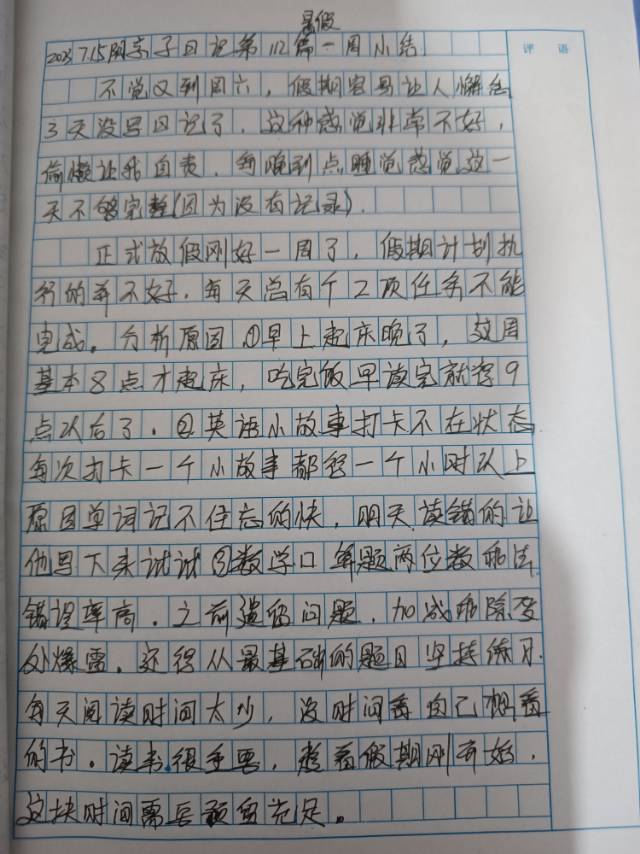 暑假
2023 7.15阴亲子日记第112篇一周小结
评 语
不觉又到周六，假期容易让人懈怠
3天没写日记了，这种感觉非常不好，
偷懒让我自责，每晚到点睡觉感觉这一
天不够完整(因为没有记录)。
正式放假刚好一周了，假期计划执
行的并不好，每天总有个2项任务不能
完成。分析原因①早上起床晚了，这周
基本8点才起床，吃完饭早读完就得9
点以后了。②英语小故事打卡不在状态
每次打卡一个小故事都得一个小时以上
原因单词记不住忘的快，明天读错的让
他写下来试试③数学口算题两位数乘法
错误率高，之前遗留问题，加减乘除变
处爆雷，还得从最基础的题目坚持练习
每天阅读时间太少，没时间看自己想看
的书。读书很重要，趁着假期刚开始，
这块时间需要预留充足。